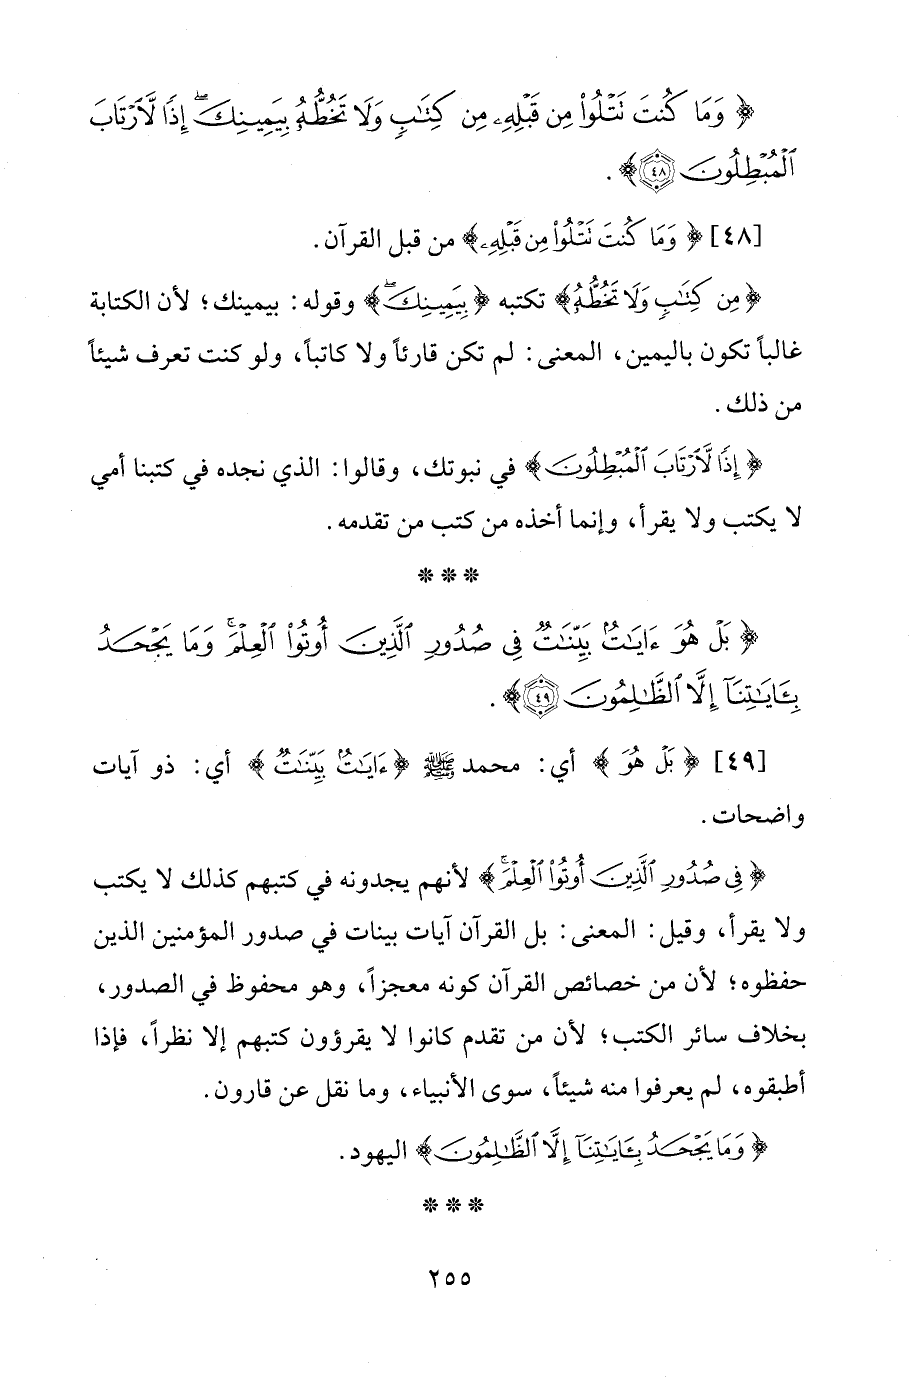 ﴿ وَمَا كُنتَ تَتْلُوا۟ مِن قَبْلِهِۦ مِن كِتَٰبٍ وَلَا تَخُطُّهُۥ بِيَمِينِكَ ۖ إِذًا لَّٱرْتَابَ
ٱلْمُبْطِلُونَ ٤٨ ﴾ .
[٤٨] ﴿ وَمَا كُنتَ تَتْلُوا۟ مِن قَبْلِهِۦ ﴾ من قبل القرآن.
﴿ مِن كِتَٰبٍ وَلَا تَخُطُّهُۥ ﴾ تكتبه ﴿ بِيَمِينِكَ ۖ ﴾ وقوله: بيمينك؛ لأن الكتابة
غالباً تكون باليمين، المعنى: لم تكن قارئاً ولا كاتباً، ولو كنت تعرف شيئاً
من ذلك.
﴿ إِذًا لَّٱرْتَابَ ٱلْمُبْطِلُونَ ﴾ في نبوتك، وقالوا: الذي نجده في كتبنا أمي
لا يكتب ولا يقرأ، وإنما أخذه من كتب من تقدمه.
* * *
﴿ بَلْ هُوَ ءَايَٰتٌۢ بَيِّنَٰتٌ فِى صُدُورِ ٱلَّذِينَ أُوتُوا۟ ٱلْعِلْمَ ۚ وَمَا يَجْحَدُ
بِـَٔايَٰتِنَآ إِلَّا ٱلظَّٰلِمُونَ ٤٩ ﴾ .
[٤٩] ﴿ بَلْ هُوَ ﴾ أي: محمد ﷺ ﴿ ءَايَٰتٌۢ بَيِّنَٰتٌ ﴾ أي: ذو آيات
واضحات.
﴿ فِى صُدُورِ ٱلَّذِينَ أُوتُوا۟ ٱلْعِلْمَ ۚ ﴾ لأنهم يجدونه في كتبهم كذلك لا يكتب
ولا يقرأ، وقيل: المعنى: بل القرآن آيات بينات في صدور المؤمنين الذين
حفظوه؛ لأن من خصائص القرآن كونه معجزاً، وهو محفوظ في الصدور،
بخلاف سائر الكتب؛ لأن من تقدم كانوا لا يقرؤون كتبهم إلا نظراً، فإذا
أطبقوه، لم يعرفوا منه شيئاً، سوى الأنبياء، وما نقل عن قارون.
﴿ وَمَا يَجْحَدُ بِـَٔايَٰتِنَآ إِلَّا ٱلظَّٰلِمُونَ ﴾ اليهود.
* * *
٢٥٥